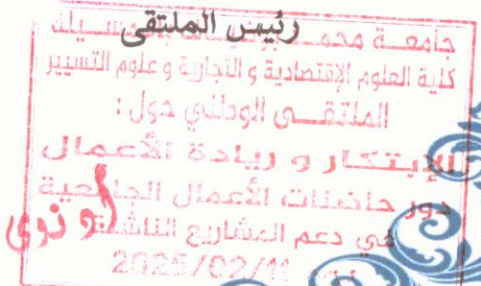 رئيس الملتقى
جامعة محمد
كلية العلوم الإقتصادية و التجارية و علوم التسيير
الملتقى الوطني حول :
الإبتكار و ريادة الأعمال
دور حاضنات الأعمال الجامعية
في دعم المشاريع الناشئة
2025/02/11